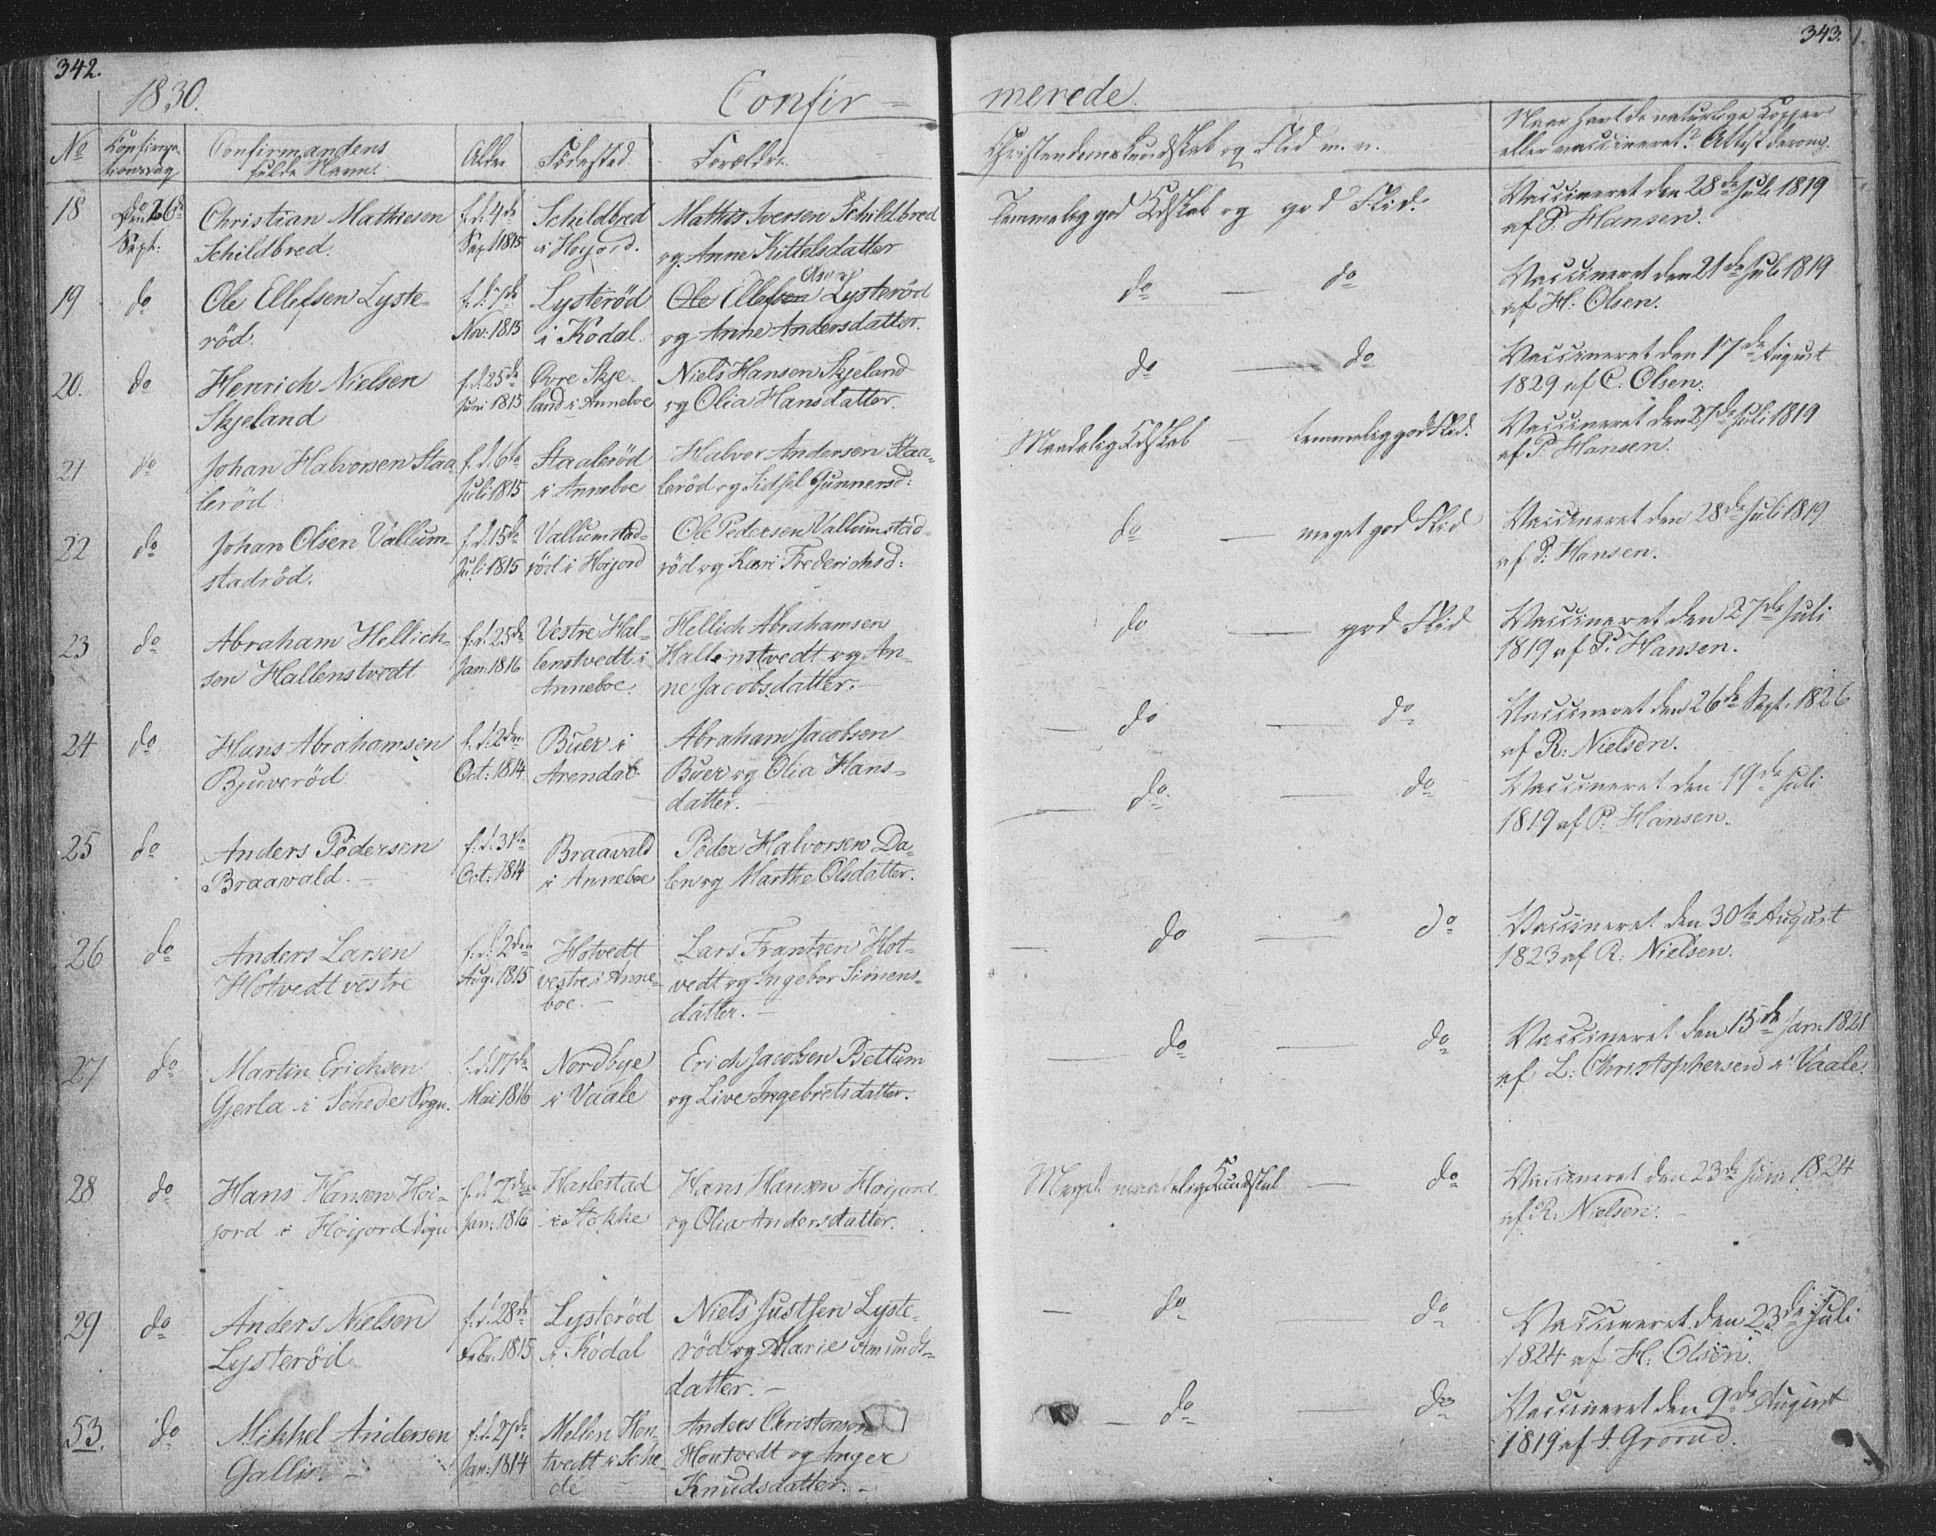 342.
1830.
Confir=
No Confirma-tionsdag Confirmandens fulde Navn. Alder Fødested Forældre.
18 do 26de Sept: Christian Mathiesen Schildbred. f. d. 4de Sept 1815 Schildbred i Hoyord. Mathis Iversen Schildbred og Anne Kittelsdatter
19 do Ole Ellefsen Lyste-röd. f. d. 7de Nov: 1815 Lysteröd i Kodal. Ole Ellefsen Olsen Lysteröd og Anne Andersdatter.
20. do Henrich Nielsen Skjeland f. d. 25de Juni 1815 Övre Skje-land i Anneboe Niels Hansen Skjeland og Olia Hansdatter.
21 do Johan Halvorsen Staa-leröd. f. d. 6te Juli 1815 Staaleröd i Anneboe Halvor Andersen Staa-leröd og Sidsel Gunnersd:
22 do Johan Olsen Vallum-stadröd. f. d. 15de Juli 1815 Vallumstad-röd i Hoijord Ole Pedersen Vallumstad-röd og Kari Frederichsd:
23 do Abraham Hellich-sen Hallenstvedt f. d. 25de Jan: 1816 Vestre Hal-lenstvedt i Anneboe. Hellich Abrahamsen Hallenstvedt og An-ne Jacobsdatter.-
24 do Hans Abrahamsen Bjuveröd f. d. 2den Oct: 1814. Buer i Arendal. Abraham Jacobsen Buer og Olia Hans-datter.-
25 do Anders Pedersen Braavald.- f. d. 31te Oct: 1814 Braavald i Anneboe Peder Halvorsen Da-len og Marthe Olsdatter.
26 do Anders Larsen Hotvedt vestre f. d. 2den Aug: 1815 Hotvedt vestre i Anne-boe.- Lars Frantzen Hot-vedt og Ingebor Simens-datter.-
27 do Martin Erichsen Gjerla i Schede Sogn. f. d. 17de Mai 1816 Nordbye i Vaale Erich Jacobsen Bettum og Live Ingebretsdatter.
28 do Hans Hansen Hoi-jord i Hoijord Sogn f. d. 7de Jan: 1816 Haslestad i Stokke Hans Hansen Hoijord og Olia Andersdatter.
29 do Anders Nielsen Lysteröd f. d. 28de Febr: 1815 Lysteröd i Kodal Niels Justsen Lyste-röd og Marie Amunds-datter.-
53. do Mikkel Andersen Gallis.- f. d. 27de Jan: 1814 Mellen Hon-tvedt i Sche-de Anders Christensen Hontvedt og Inger Knudsdatter.-
343.
merede.
Christendomskundskab og Flid m. v.
Naar havt de naturlige Kopper eller vaccineret? Attest derom.
Temmelig god Kdskab og god Flid. Vaccineret den 28de Juli 1819 af P. Hansen.
do — do Vaccineret den 21de Juli 1819 af H: Olsen.
do — do Vaccineret den 17de August 1829 af C. Olsen.
Maadelig Kdskab — temmelig god Flid. Vaccineret den 27de Juli 1819 af P. Hansen.
do — meget god Flid Vaccineret den 28de Juli 1819 af P: Hansen.
do — god Flid Vaccineret den 27de Juli 1819 af P. Hansen.
— do — do Vaccineret den 26de Sept: 1826 af R: Nielsen.
— do — do Vaccineret den 19de Juli 1819 af P. Hansen.
— do — do Vaccineret den 30te August 1823 af R. Nielsen.
— do — do Vaccineret den 15de Jan: 1821 af L: Christophersen i Vaale.
Meget maadelig Kundskab — do Vaccineret den 23de Juni 1824 af R. Nielsen.-
— do — do Vaccineret den 23de Juli 1824 af H: Olsen.
— do — do Vaccineret den 9de August 1819 af J. Grorud.